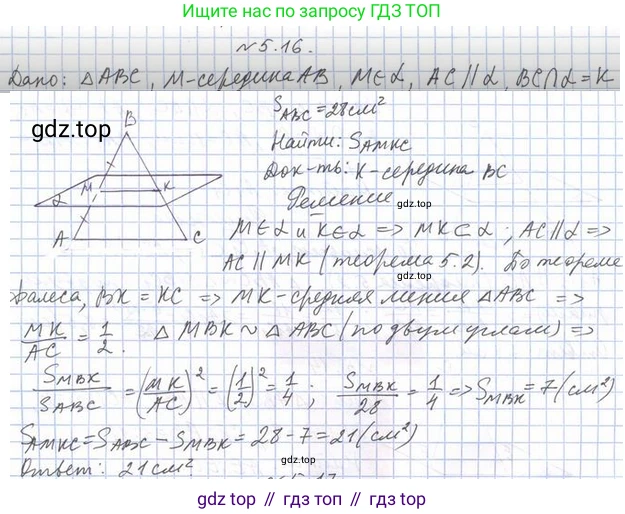 Ищите по запросу ГДЗ ТОП
№5.16.
Дано: △ABC, M-середина AB, M∈α, AC∥α, BC∩α=K
S_ABC=28см²
гдз.top
Найти: S_AMKC
Док-ть: K-середина BC
Решение
гдз.top
B
M K
α
A C
M∈α и K∈α => MK⊂α; AC∥α =>
AC∥MK (теорема 5.2). По теореме
Фалеса, BK=KC => MK-средняя линия △ABC =>
MK/AC = 1/2. △MBK ~ △ABC (по двум углам) =>
S_MBK/S_ABC = (MK/AC)² = (1/2)² = 1/4; S_MBK/28 = 1/4 => S_MBK = 7(см²)
S_AMKC = S_ABC - S_MBK = 28-7 = 21(см²)
Ответ: 21см².
гдз.top
№5.17
гдз.top // гдз топ // gdz.top